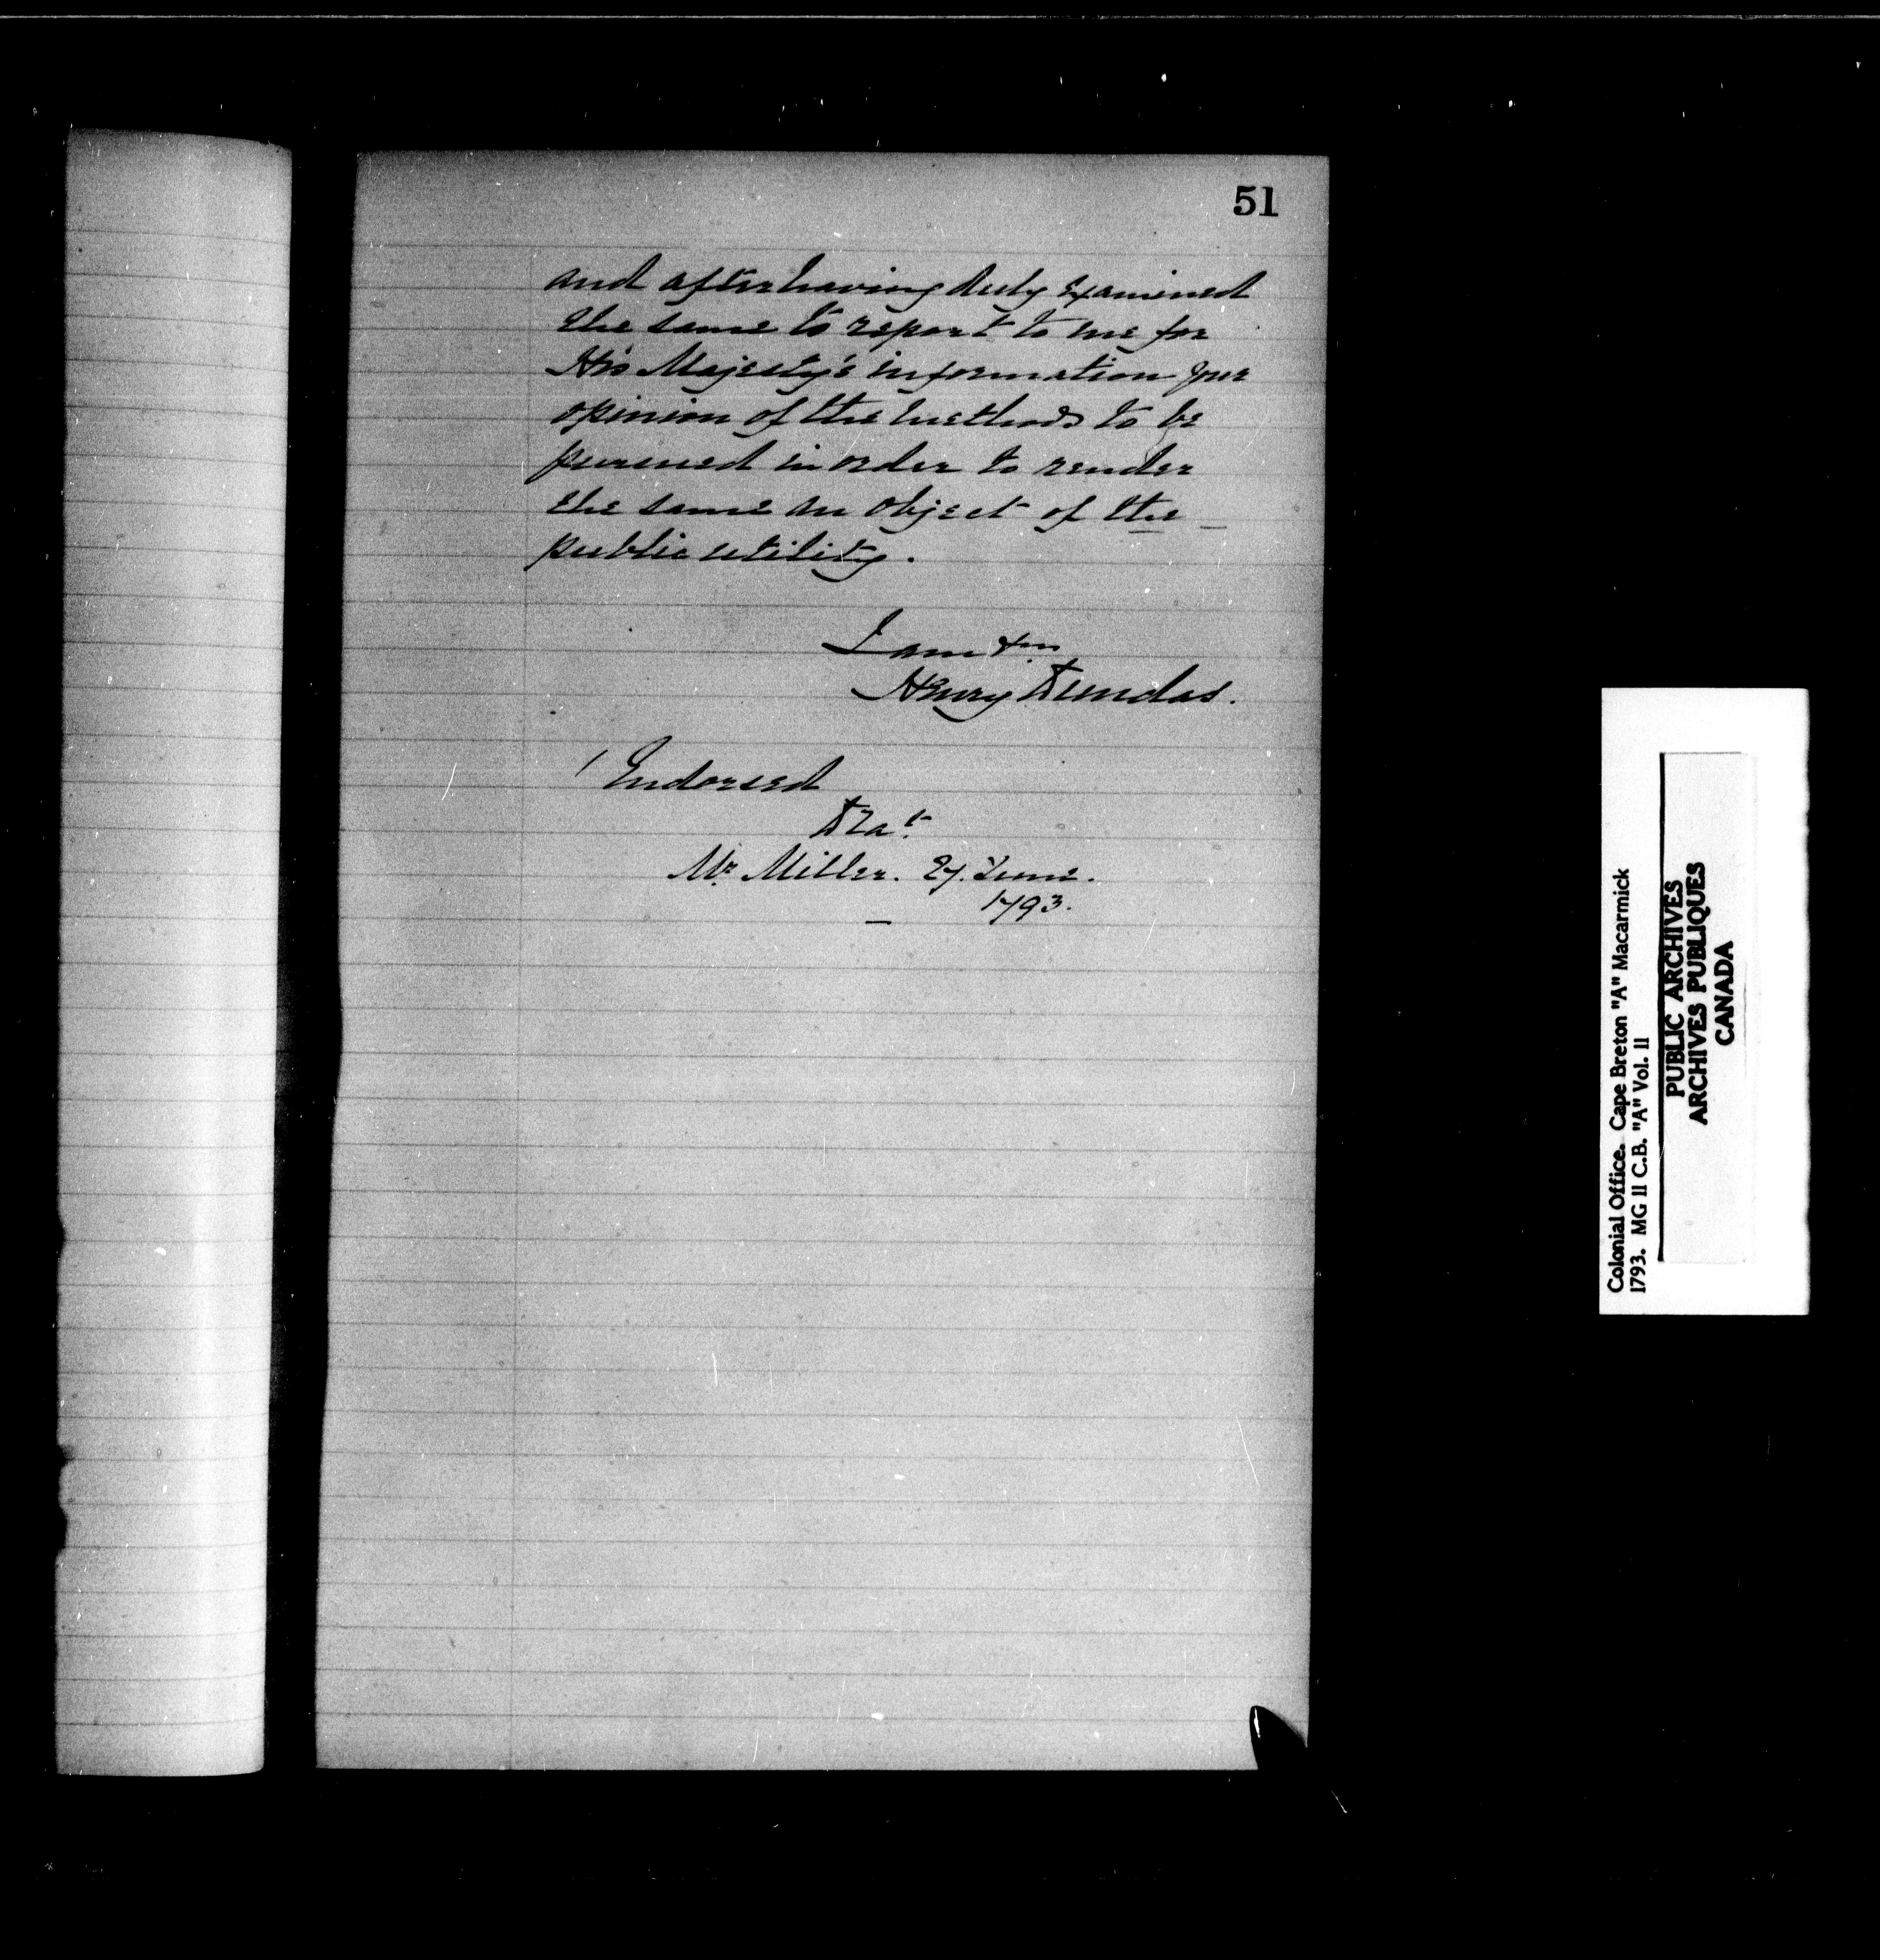 51
and after having duly examined
the same to report to me for
His Majesty's information your
opinion of the methods to be
pursued in order to render
the same an Object of the
public utility.
I am &c
Henry Dundas.
Endorsed
Dra.t
Mr Miller. 27. June.
1793.
Colonial Office. Cape Breton "A" Macarmick
1793. MG 11 C.B. "A" Vol. 11
PUBLIC ARCHIVES
ARCHIVES PUBLIQUES
CANADA